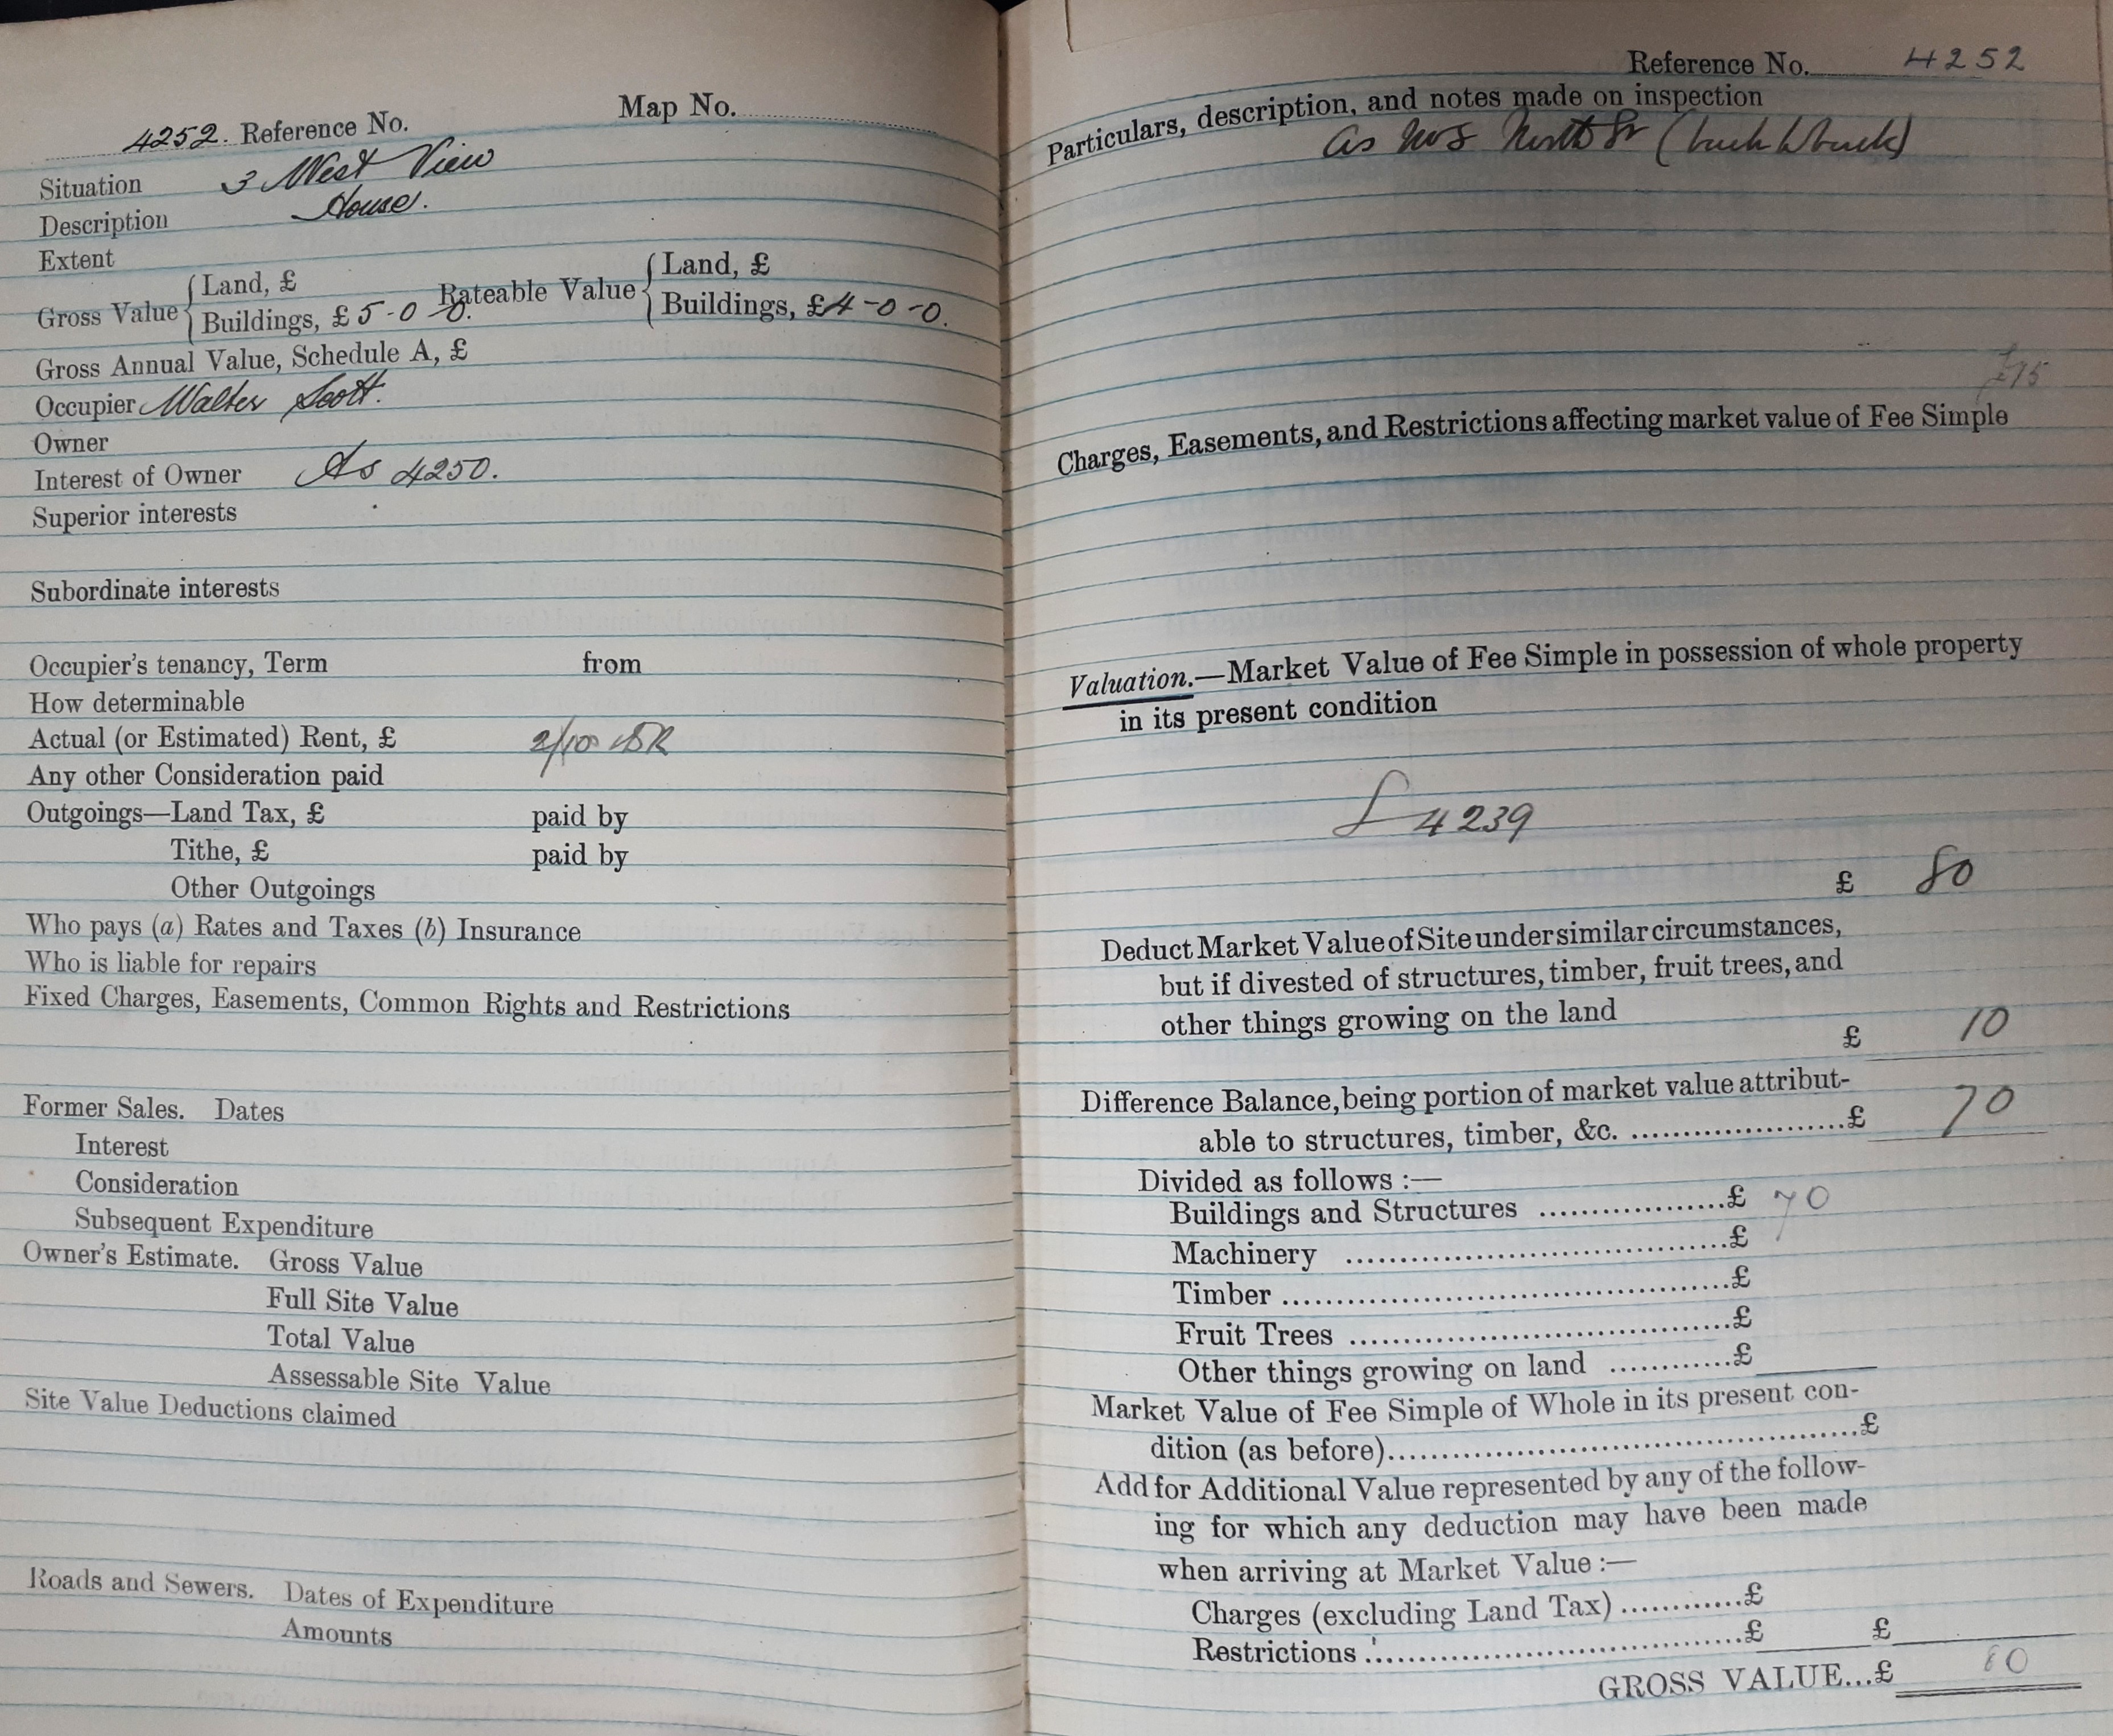 4252. Reference No. Map No.
Situation 3 West View
Description House.
Extent
Gross Value { Land, £ Rateable Value { Land, £
Buildings, £ 5-0-0. Buildings, £4-0-0.
Gross Annual Value, Schedule A, £
Occupier Walter Scott.
Owner
Interest of Owner As 4250.
Superior interests
Subordinate interests
Occupier's tenancy, Term from
How determinable
Actual (or Estimated) Rent, £ 2/10
Any other Consideration paid
Outgoings—Land Tax, £ paid by
Tithe, £ paid by
Other Outgoings
Who pays (a) Rates and Taxes (b) Insurance
Who is liable for repairs
Fixed Charges, Easements, Common Rights and Restrictions
Former Sales. Dates
Interest
Consideration
Subsequent Expenditure
Owner's Estimate. Gross Value
Full Site Value
Total Value
Assessable Site Value
Site Value Deductions claimed
Roads and Sewers. Dates of Expenditure
Amounts
Reference No. 4252
Particulars, description, and notes made on inspection
as No 5 North St (back to back)
£75
Charges, Easements, and Restrictions affecting market value of Fee Simple
Valuation.—Market Value of Fee Simple in possession of whole property
in its present condition
£ 4239
£ 80
Deduct Market Value of Site under similar circumstances,
but if divested of structures, timber, fruit trees, and
other things growing on the land
£ 10
Difference Balance, being portion of market value attribut-
able to structures, timber, &c. ......................£ 70
Divided as follows :—
Buildings and Structures ...................£ 70
Machinery .......................................£
Timber .............................................£
Fruit Trees ......................................£
Other things growing on land ............£
Market Value of Fee Simple of Whole in its present con-
dition (as before)..................................................£
Add for Additional Value represented by any of the follow-
ing for which any deduction may have been made
when arriving at Market Value :—
Charges (excluding Land Tax) ............£
Restrictions ......................................£ £
GROSS VALUE...£ 80